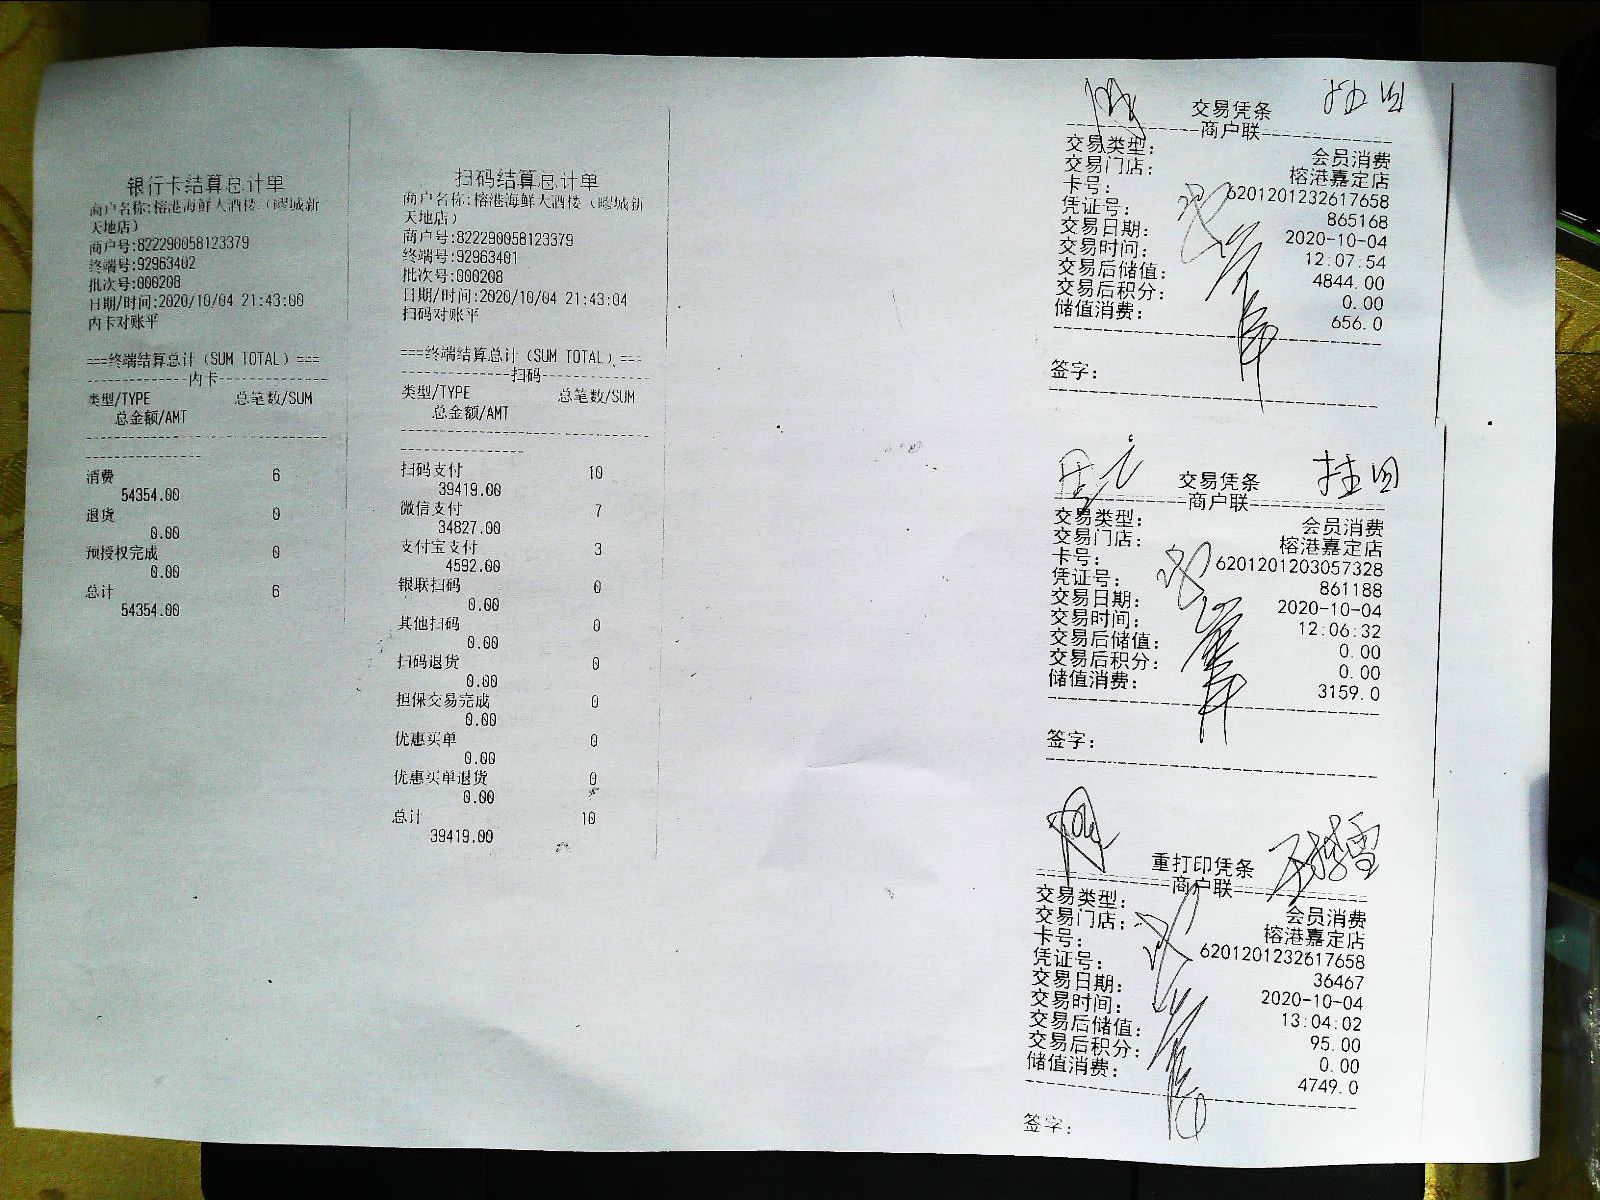 银行卡结算总计单
商户名称:榕港海鲜大酒楼（疁城新
天地店）
商户号:822290058123379
终端号:92963402
批次号:000208
日期/时间:2020/10/04 21:43:00
内卡对账平
===终端结算总计（SUM TOTAL）===
内卡
类型/TYPE 总笔数/SUM
总金额/AMT
消费 6
54354.00
退货 0
0.00
预授权完成 0
0.00
总计 6
54354.00
扫码结算总计单
商户名称:榕港海鲜大酒楼（疁城新
天地店）
商户号:822290058123379
终端号:92963401
批次号:000208
日期/时间:2020/10/04 21:43:04
扫码对账平
===终端结算总计（SUM TOTAL）===
扫码
类型/TYPE 总笔数/SUM
总金额/AMT
扫码支付 10
39419.00
微信支付 7
34827.00
支付宝支付 3
4592.00
银联扫码 0
0.00
其他扫码 0
0.00
扫码退货 0
0.00
担保交易完成 0
0.00
优惠买单 0
0.00
优惠买单退货 0
0.00
总计 10
39419.00
交易凭条
商户联
交易类型: 会员消费
交易门店: 榕港嘉定店
卡号: 6201201232617658
凭证号: 865168
交易日期: 2020-10-04
交易时间: 12:07:54
交易后储值: 4844.00
交易后积分: 0.00
储值消费: 656.0
签字:
交易凭条
商户联
交易类型: 会员消费
交易门店: 榕港嘉定店
卡号: 6201201203057328
凭证号: 861188
交易日期: 2020-10-04
交易时间: 12:06:32
交易后储值: 0.00
交易后积分: 0.00
储值消费: 3159.0
签字:
重打印凭条
商户联
交易类型: 会员消费
交易门店: 榕港嘉定店
卡号: 6201201232617658
凭证号: 36467
交易日期: 2020-10-04
交易时间: 13:04:02
交易后储值: 95.00
交易后积分: 0.00
储值消费: 4749.0
签字: